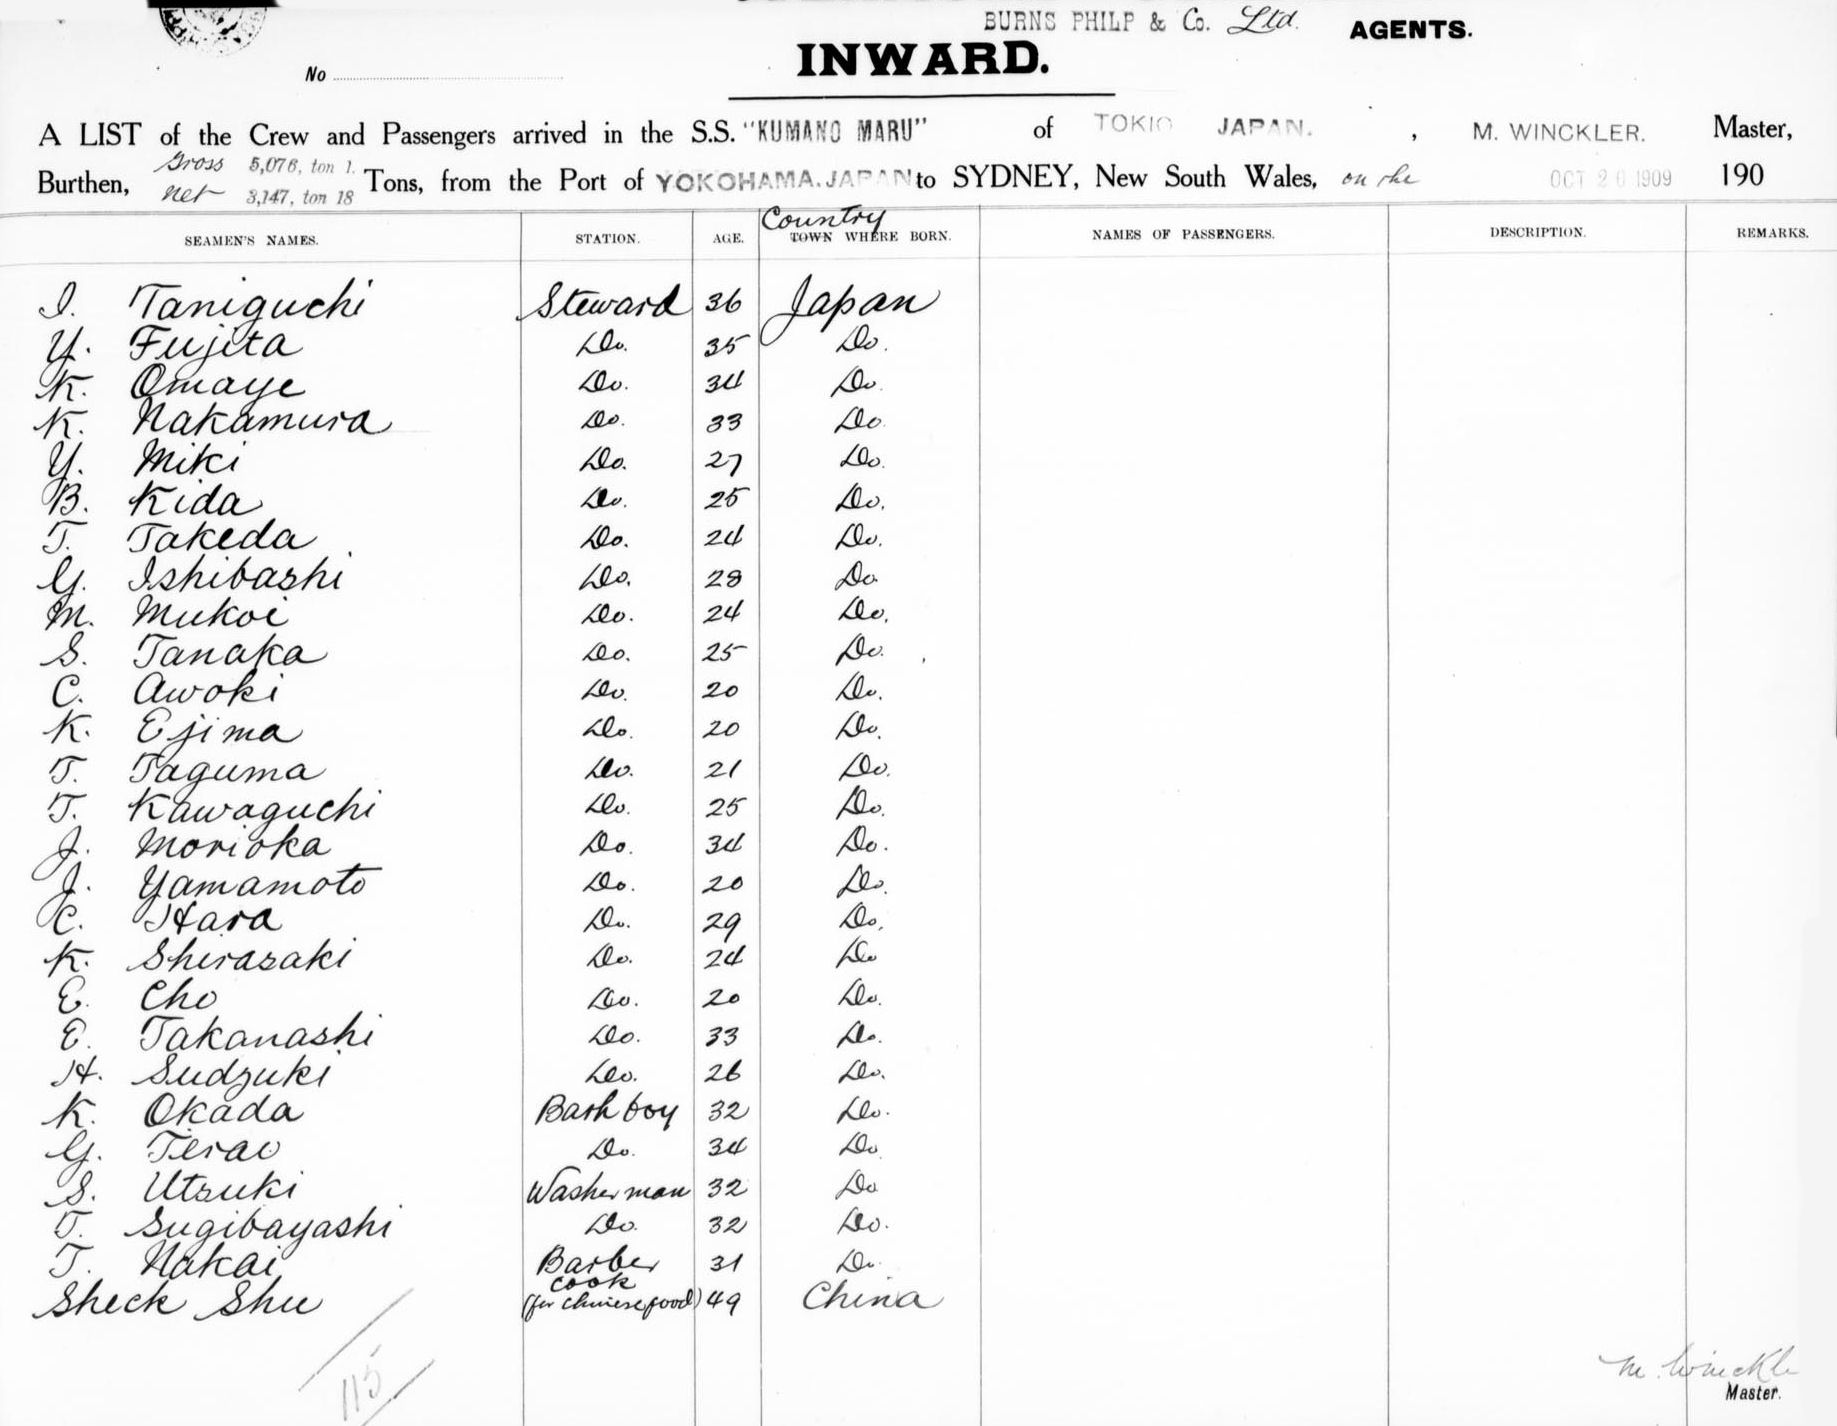 BURNS PHILP & Co. Ltd. AGENTS.
INWARD.
No
A LIST of the Crew and Passengers arrived in the S.S. "KUMANO MARU" of TOKIO JAPAN. , M. WINCKLER. Master,
Burthen, Gross 5,076, ton 1. Net 3,147, ton 18 Tons, from the Port of YOKOHAMA. JAPAN to SYDNEY, New South Wales, on the OCT 26 1909 190
SEAMEN'S NAMES. STATION. AGE. Country TOWN WHERE BORN. NAMES OF PASSENGERS. DESCRIPTION. REMARKS.
I. Taniguchi Steward 36 Japan
Y. Fujita Do. 35 Do.
K. Omaye Do. 34 Do.
K. Nakamura Do. 33 Do.
Y. Miki Do. 27 Do.
B. Kida Do. 25 Do.
T. Takeda Do. 24 Do.
G. Ishibashi Do. 28 Do.
M. Mukoi Do. 24 Do.
S. Tanaka Do. 25 Do.
C. Awoki Do. 20 Do.
K. Ejima Do. 20 Do.
T. Taguma Do. 21 Do.
T. Kawaguchi Do. 25 Do.
J. Morioka Do. 34 Do.
J. Yamamoto Do. 20 Do.
C. Hara Do. 29 Do.
K. Shirasaki Do. 24 Do
E. Cho Do. 20 Do.
E. Takanashi Do. 33 Do.
H. Sudzuki Do. 26 Do.
K. Okada Bath boy 32 Do.
G. Terao Do. 34 Do
S. Utsuki Washerman 32 Do
T. Sugibayashi Do. 32 Do.
T. Nakai Barber 31 Do.
Sheck Shu Cook (for Chinese food) 49 China
115
M. Winckler
Master.